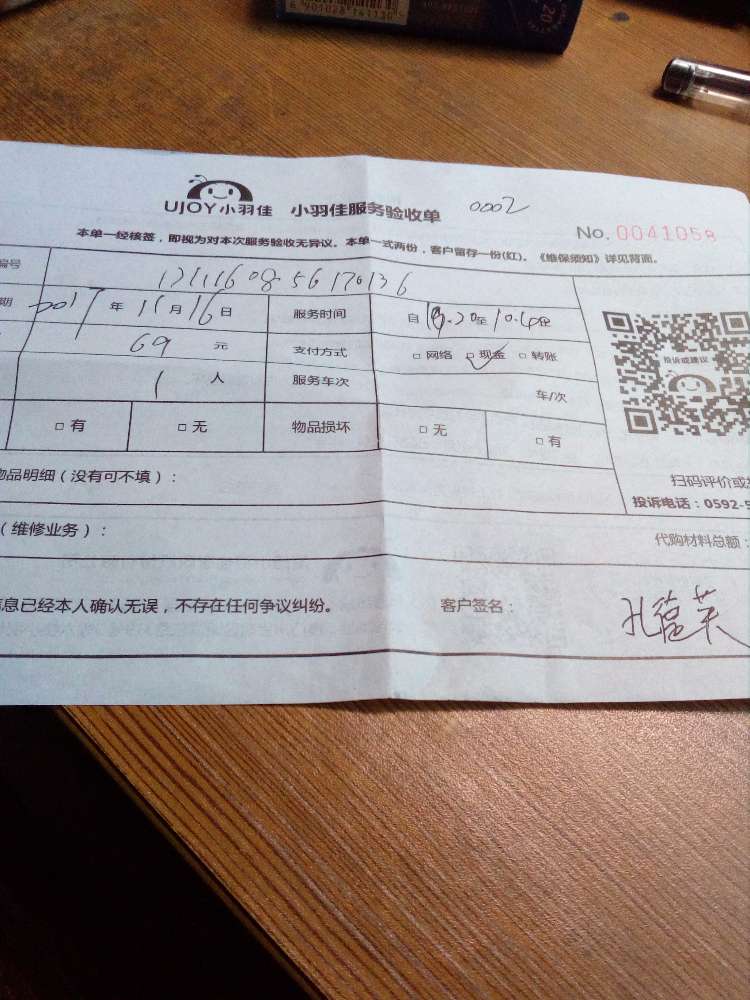 6 901028 141130
20
UJOY小羽佳 小羽佳服务验收单 0002
No. 0041058
本单一经核签，即视为对本次服务验收无异议。本单一式两份，客户留存一份(红)。《维保须知》详见背面。
编号
期 2017 年 11月 16日 服务时间 自 至
69 元 支付方式 □ 网络 □ 现金 □ 转账
投诉或建议
1 人 服务车次 车/次
□ 有 □ 无 物品损坏 □ 无 □ 有
物品明细（没有可不填）：
扫码评价或
投诉电话：0592-5
（维修业务）： 代购材料总额：
信息已经本人确认无误，不存在任何争议纠纷。 客户签名：